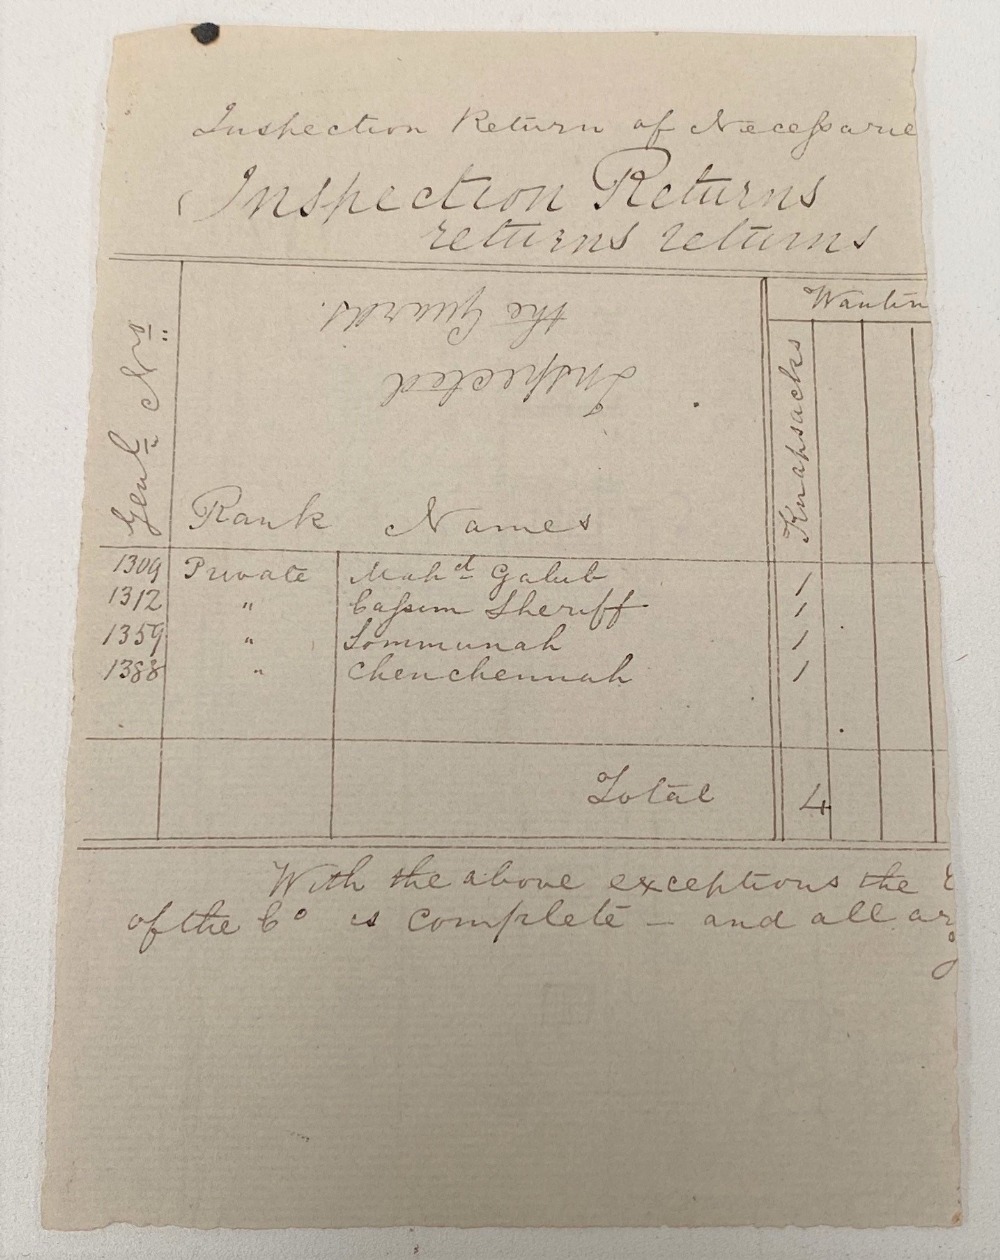 Inspection Return of Necessarie
Inspection Returns
returns returns
Genl. Nrs.
Inspected
the Guards.
Rank Names
Wantin
Knapsacks
1309 Private Mahd. Galub 1
1312 " Cassim Sheriff 1
1359 " Sommunah 1
1388 " Chenchennah 1
Total 4
With the above exceptions the
of the Co is complete – and all